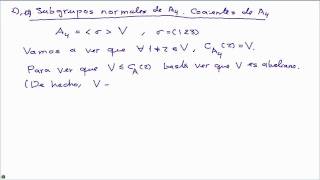 2), a) Subgrupos normales de A₄. Cocientes de A₄
A₄ = <σ> V , σ = (123)
Vamos a ver que ∀ 1 ≠ z ∈ V, C_A₄(z) = V.
Para ver que V ≤ C_A(z) basta ver que V es abeliano.
(De hecho, V -